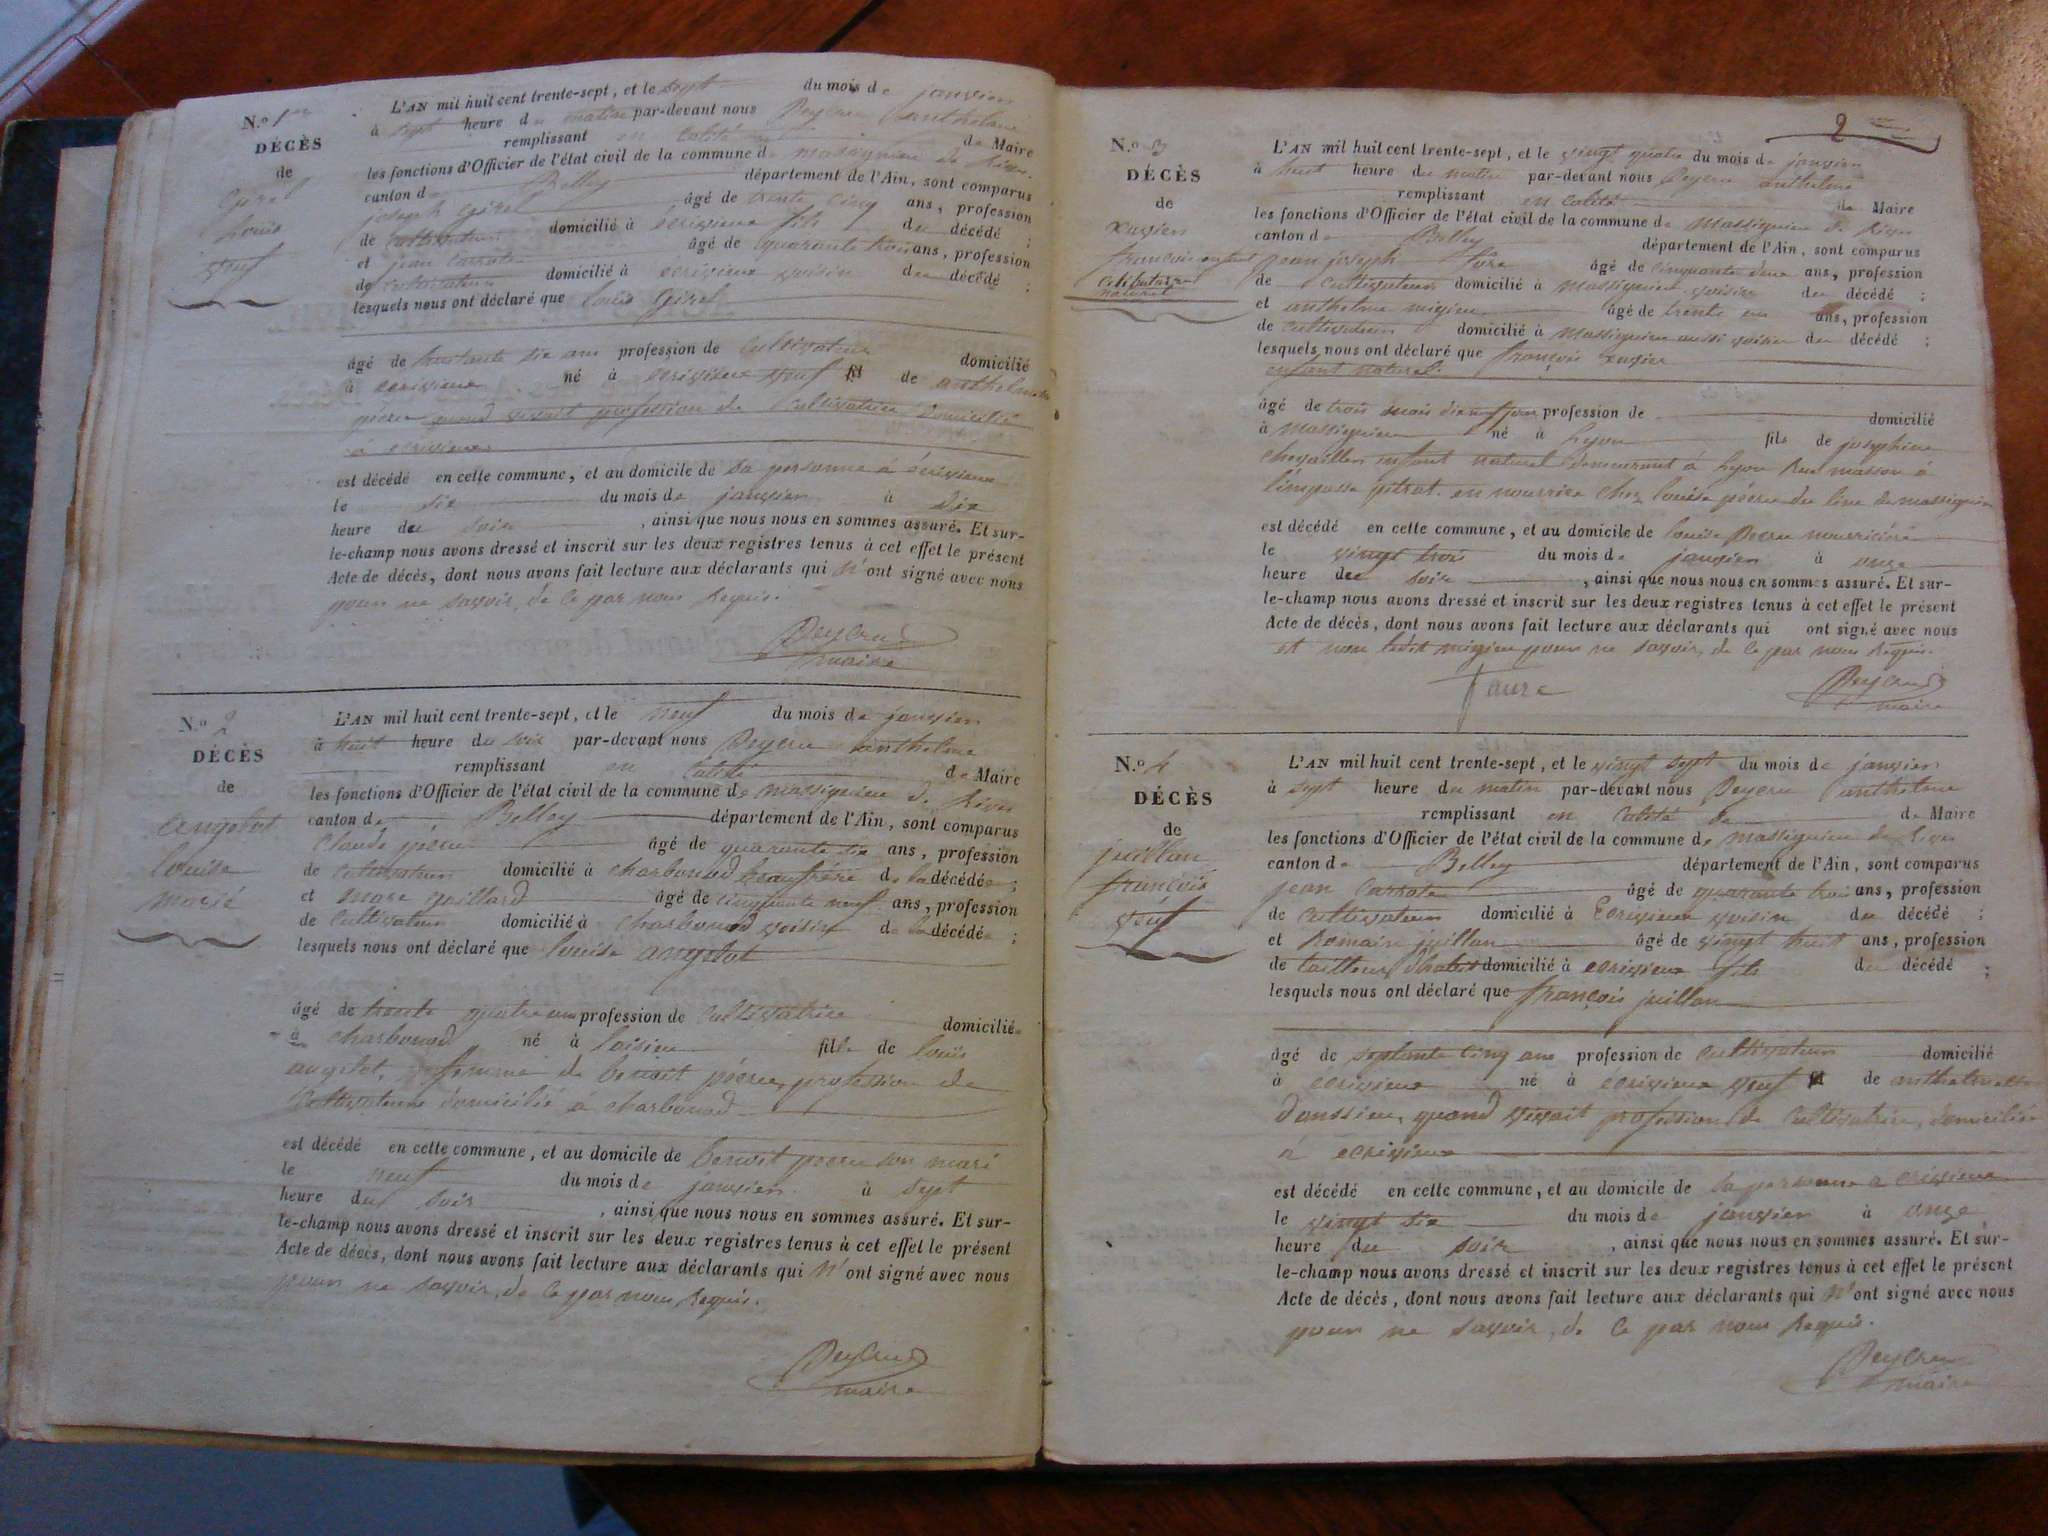 N.º 1er
DÉCÈS
de
Girel
Louis
veuf
L'AN mil huit cent trente-sept, et le sept du mois de janvier
à sept heure du matin par-devant nous Peycru anthelme
remplissant en calité de Maire
les fonctions d'Officier de l'état civil de la commune de massignieu de Rives
canton de Belley département de l'Ain, sont comparus
joseph Girel âgé de trente cinq ans, profession
de cultivateur domicilié à écrivieux fils du décédé ;
et jean Carrote âgé de quarante trois ans, profession
de cultivateur domicilié à écrivieux voisin du décédé ;
lesquels nous ont déclaré que louis Girel
âgé de septante six ans profession de cultivateur domicilié
à écrivieux né à écrivieux veuf de anthelmette
quand vivait profession de Cultivatrice domicilié
à écrivieux
est décédé en cette commune, et au domicile de sa personne à écrivieux
le six du mois de janvier à dix
heure du soir , ainsi que nous nous en sommes assuré. Et sur-
le-champ nous avons dressé et inscrit sur les deux registres tenus à cet effet le présent
Acte de décès, dont nous avons fait lecture aux déclarants qui n'ont signé avec nous
pour ne savoir, de ce par nous Requis.
Peycru
maire
N.º 2
DÉCÈS
de
angelot
louise
marié
L'AN mil huit cent trente-sept, et le neuf du mois de janvier
à huit heure du soir par-devant nous Peycru anthelme
remplissant en calité de Maire
les fonctions d'Officier de l'état civil de la commune de massignieu de Rives
canton de Belley département de l'Ain, sont comparus
Claude pécru âgé de quarante six ans, profession
de cultivateur domicilié à charbonod beaufrère de la décédée ;
et marc juillard âgé de cinquante neuf ans, profession
de cultivateur domicilié à charbonod voisin de la décédée ;
lesquels nous ont déclaré que louise angelot
âgé de trente quatre ans profession de cultivatrice domicilié
à charbonod né à loisieu fille de louis
angelot, femme de benoit pécru, profession de
Cultivateur domicilié à charbonod
est décédé en cette commune, et au domicile de benoit pecru son mari
le neuf du mois de janvier à sept
heure du soir , ainsi que nous nous en sommes assuré. Et sur-
le-champ nous avons dressé et inscrit sur les deux registres tenus à cet effet le présent
Acte de décès, dont nous avons fait lecture aux déclarants qui n'ont signé avec nous
pour ne savoir, de ce par nous Requis.
Peycru
maire
2
N.º 3
DÉCÈS
de
xavier
françois enfant
naturel
L'AN mil huit cent trente-sept, et le vingt quatre du mois de janvier
à huit heure du matin par-devant nous Peycru anthelme
remplissant en calité de Maire
les fonctions d'Officier de l'état civil de la commune de Massignieu de Rives
canton de Belley département de l'Ain, sont comparus
jean joseph fore âgé de cinquante deux ans, profession
de cultivateur domicilié à massignieu voisin du décédé ;
et anthelme migieu âgé de trente un ans, profession
de cultivateur domicilié à Massignieu aussi voisin du décédé ;
lesquels nous ont déclaré que françois xavier
enfant naturel.
âgé de trois mois jour profession de domicilié
à massignieu né à Lyon fils de josephine
chevaillier enfant naturel demeurant à Lyon Rue masson à
l'impasse pitrat. en nourrice chez louise pécru du lieu de massignieu
est décédé en cette commune, et au domicile de louise Pecru nourricière
le vingt trois du mois de janvier à onze
heure du soir , ainsi que nous nous en sommes assuré. Et sur-
le-champ nous avons dressé et inscrit sur les deux registres tenus à cet effet le présent
Acte de décès, dont nous avons fait lecture aux déclarants qui ont signé avec nous
et non ledit migieu pour ne savoir, de ce par nous Requis.
faure
Peycru
maire
N.º 4
DÉCÈS
de
juillan
françois
veuf
L'AN mil huit cent trente-sept, et le vingt sept du mois de janvier
à sept heure du matin par-devant nous Peycru anthelme
remplissant en calité de de Maire
les fonctions d'Officier de l'état civil de la commune de massignieu de Rives
canton de Belley département de l'Ain, sont comparus
jean Carrote âgé de quarante trois ans, profession
de cultivateur domicilié à Ecrivieux voisin du décédé ;
et Romain juillan âgé de vingt huit ans, profession
de tailleur d'habit domicilié à ecrivieux fils du décédé ;
lesquels nous ont déclaré que françois juillan
âgé de septante cinq ans profession de cultivateur domicilié
à ecrivieux né à écrivieux veuf de anthelmette
quand vivait profession de cultivatrice, domicilié
à ecrivieux
est décédé en cette commune, et au domicile de sa personne a ecrivieux
le vingt six du mois de janvier à onze
heure du soir , ainsi que nous nous en sommes assuré. Et sur-
le-champ nous avons dressé et inscrit sur les deux registres tenus à cet effet le présent
Acte de décès, dont nous avons fait lecture aux déclarants qui n'ont signé avec nous
pour ne savoir, de ce par nous Requis.
Peycru
maire